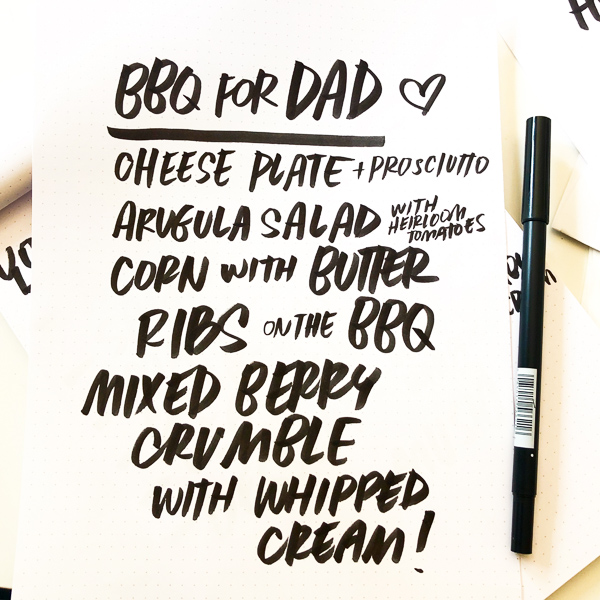 BBQ FOR DAD
CHEESE PLATE + PROSCIUTTO
ARUGULA SALAD WITH HEIRLOOM TOMATOES
CORN WITH BUTTER
RIBS ON THE BBQ
MIXED BERRY
CRUMBLE
WITH WHIPPED
CREAM!